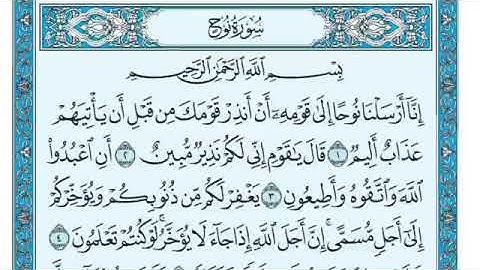 سُورَةُ نُوحٍ
بِسْمِ اللَّهِ الرَّحْمَٰنِ الرَّحِيمِ
إِنَّا أَرْسَلْنَا نُوحًا إِلَىٰ قَوْمِهِ أَنْ أَنذِرْ قَوْمَكَ مِن قَبْلِ أَن يَأْتِيَهُمْ
عَذَابٌ أَلِيمٌ ١ قَالَ يَٰقَوْمِ إِنِّي لَكُمْ نَذِيرٌ مُّبِينٌ ٢ أَنِ اعْبُدُوا
اللَّهَ وَاتَّقُوهُ وَأَطِيعُونِ ٣ يَغْفِرْ لَكُم مِّن ذُنُوبِكُمْ وَيُؤَخِّرْكُمْ
إِلَىٰ أَجَلٍ مُّسَمًّى ۚ إِنَّ أَجَلَ اللَّهِ إِذَا جَاءَ لَا يُؤَخَّرُ ۖ لَوْ كُنتُمْ تَعْلَمُونَ ٤